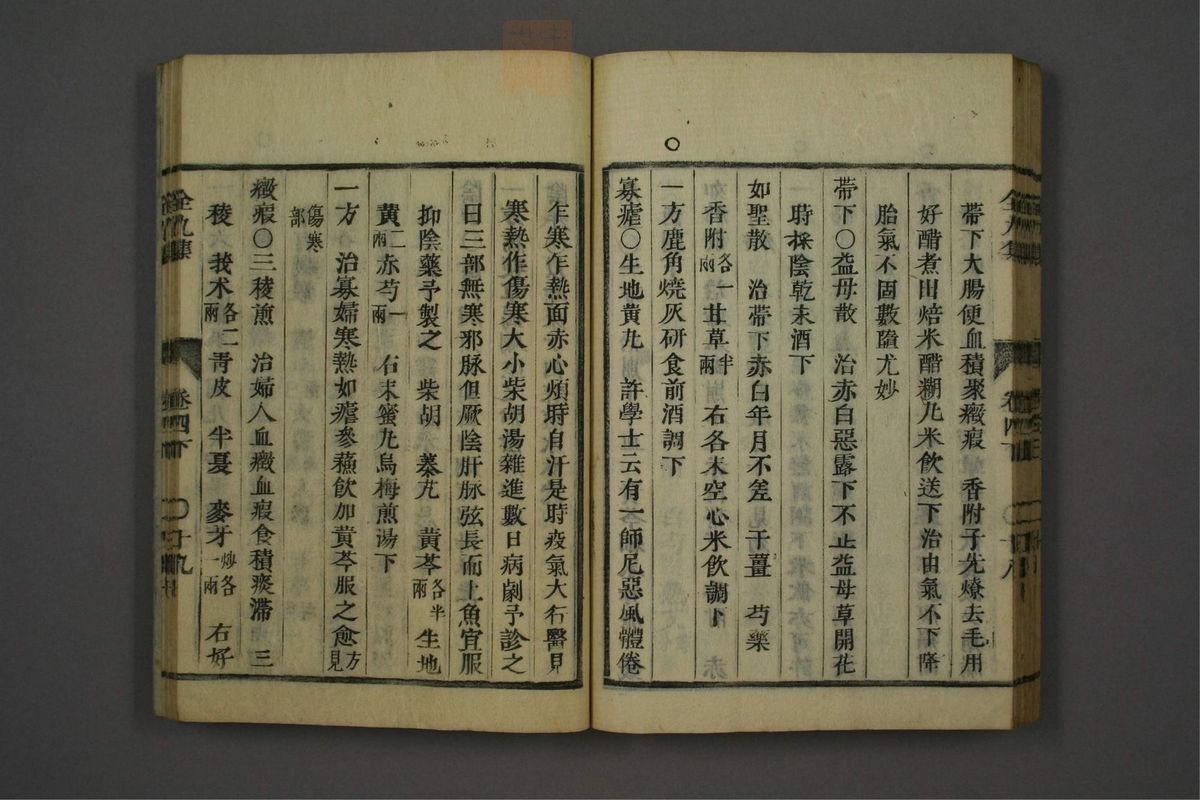 帶下大腸便血積聚癥瘕 香附子先燎去毛用
好醋煮田焙米醋糊九米飲送下治由氣不下降
胎氣不固數墮尤妙
帶下〇益母散 治赤白惡露下不止益母草開花
時採陰乾末酒下
如聖散 治帶下赤白年月不差 干薑 芍藥
香附各一兩 甘草半兩 右各末空心米飲調下
一方鹿角燒灰研食前酒調下
寡瘧〇生地黃九 許學士云有一師尼惡風體倦
乍寒乍熱面赤心煩時自汗是時疫氣大行醫見
寒熱作傷寒大小柴胡湯雜進數日病劇予診之
曰三部無寒邪脉但厥陰肝脉弦長而上魚宜服
抑陰藥予製之 柴胡 蓁艽 黃芩各半兩 生地
黃二兩 赤芍一兩 右末蜜九烏梅煎湯下
一方 治寡婦寒熱如瘧參蘇飲加黃芩服之愈方見
傷寒部
癥瘕〇三稜煎 治婦人血癥血瘕食積痰滯 三
稜 莪术各二兩 靑皮 半夏 麥牙炒各一兩 右好
全九集
卷四下
〇十九